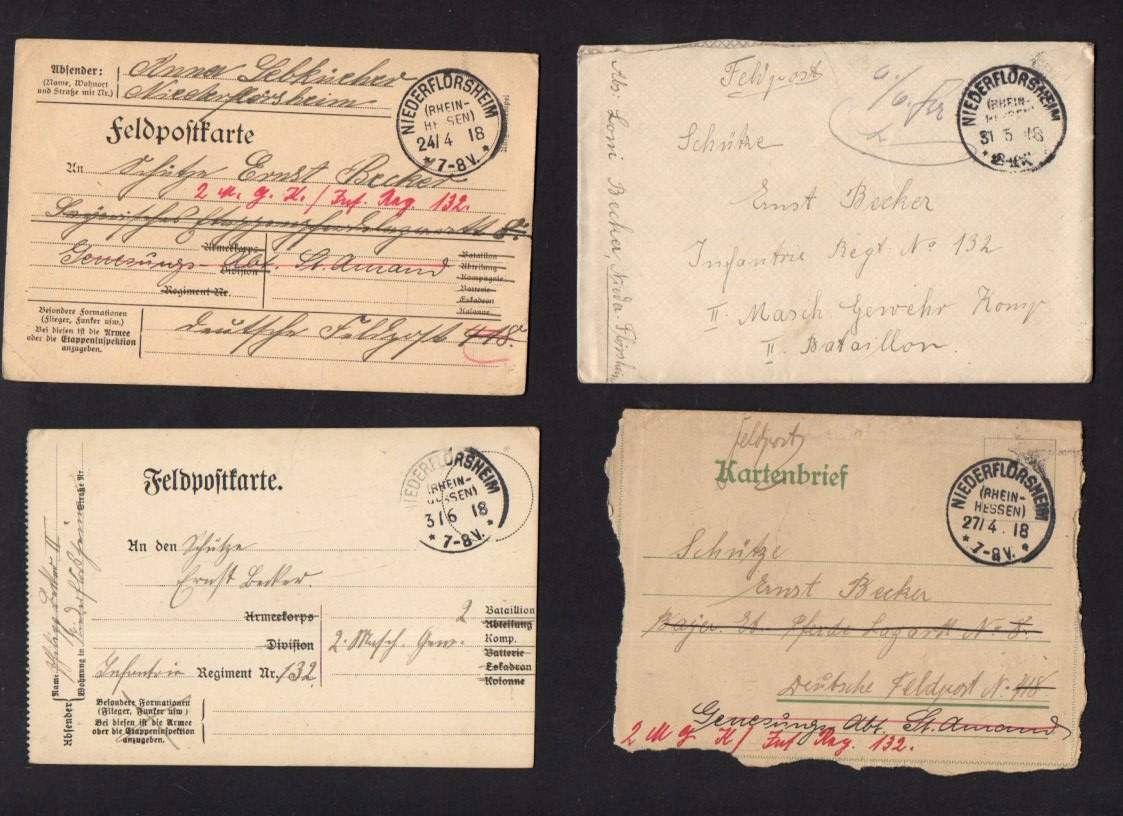 Absender:
(Name, Wohnort
und Straße mit Nr.)
Anna
Niederflörsheim
NIEDERFLÖRSHEIM
(RHEIN-
HESSEN)
24/4 18
* 7-8V. *
Feldpostkarte
An Schütze Ernst Becker
2 M. G. K. / Inf. Reg. 132.
Armeekorps
Genesungs- Abt. St. Amand
Division
Regiment Nr.
Bataillon
Abteilung
Kompagnie
Batterie
Eskadron
Kolonne
Besondere Formationen
(Flieger, Funker usw.)
Bei diesen ist die Armee
oder die Etappeninspektion
anzugeben.
Deutsche Feldpost 418.
Feldpost
NIEDERFLÖRSHEIM
(RHEIN-
HESSEN)
31 5 18
Schütze
Ernst Becker
Infantrie Regt No 132
II Masch. Gewehr Komp
II. Bataillon.
Abs: Becker, Nieder-Flörsheim
Feldpostkarte.
NIEDERFLÖRSHEIM
(RHEIN-
HESSEN)
3/6 18
* 7-8V. *
An den Schütze
Ernst Becker.
Armeekorps
Division
2. Masch. Gew.
2 Bataillion
Abteilung
Komp.
Batterie
Eskadron
Kolonne
Infantrie Regiment Nr. 132
Besondere Formationen
(Flieger, Funker usw)
Bei diesen ist die Armee
oder die Etappeninspektion
anzugeben.
Absender
Name
Wohnung in
Straße Nr
Feldpost
Kartenbrief
NIEDERFLÖRSHEIM
(RHEIN-
HESSEN)
27/4 18
* 7-8V. *
Schütze
Ernst Becker
Bayr. Et. Pferde Lazarett No 8.
Deutsche Feldpost No 418
Genesungs Abt. St. Amand
2 M G K / Inf Reg. 132.